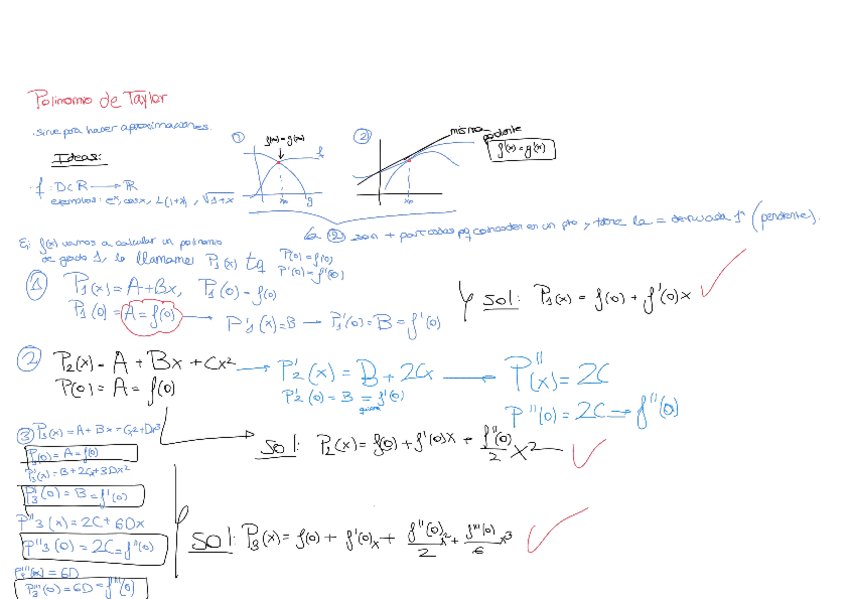 Polinomio de Taylor
· sirve para hacer aproximaciones.
Ideas:
· f: D⊂R → R
ejemplos: eˣ, cosx, L(1+x), √1+x
①
f(x₀)=g(x₀)
f
x₀
g
②
misma pendiente
f'(x₀)=g'(x₀)
x₀
② son + parecidas pq coinciden en un pto y tiene la = derivada 1ª (pendiente).
Ej: f(x) vamos a calcular un polinomio
de grado 1, lo llamamos P₁(x) tq
P(0)=f(0)
P'(0)=f'(0)
① P₁(x)=A+Bx, P₁(0)=f(0)
P₁(0)=A=f(0) → P'₁(x)=B → P'₁(0)=B=f'(0)
sol: P₁(x)=f(0)+f'(0)x
② P₂(x)=A+Bx+Cx² → P'₂(x)=B+2Cx → P''(x)=2C
P(0)=A=f(0)
P'₂(0)=B=f'(0)
P''(0)=2C→f''(0)
sol: P₂(x)=f(0)+f'(0)x+f''(0)/2 x²
③ P₃(x)=A+Bx+Cx²+Dx³
P₃(0)=A=f(0)
P'₃(x)=B+2Cx+3Dx²
P'₃(0)=B=f'(0)
P''3(x)=2C+6Dx
P''3(0)=2C=f''(0)
P'''₃(x)=6D
P'''₃(0)=6D=f'''(0)
Sol: P₃(x)=f(0)+f'(0)x+f''(0)/2 x²+f'''(0)/6 x³